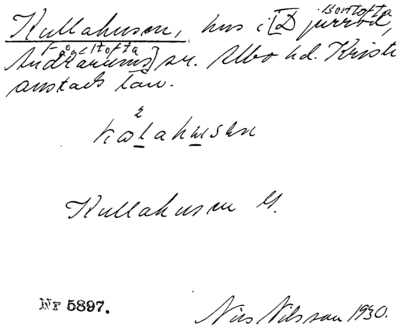 Kullahusen, hus i [Djurröd, Bontofta
Andrarums] Tåghstofta sn. Albo hd. Kristi-
anstads län.
Kullahusen G.
NF 5897.
Nils Nilsson 1930.